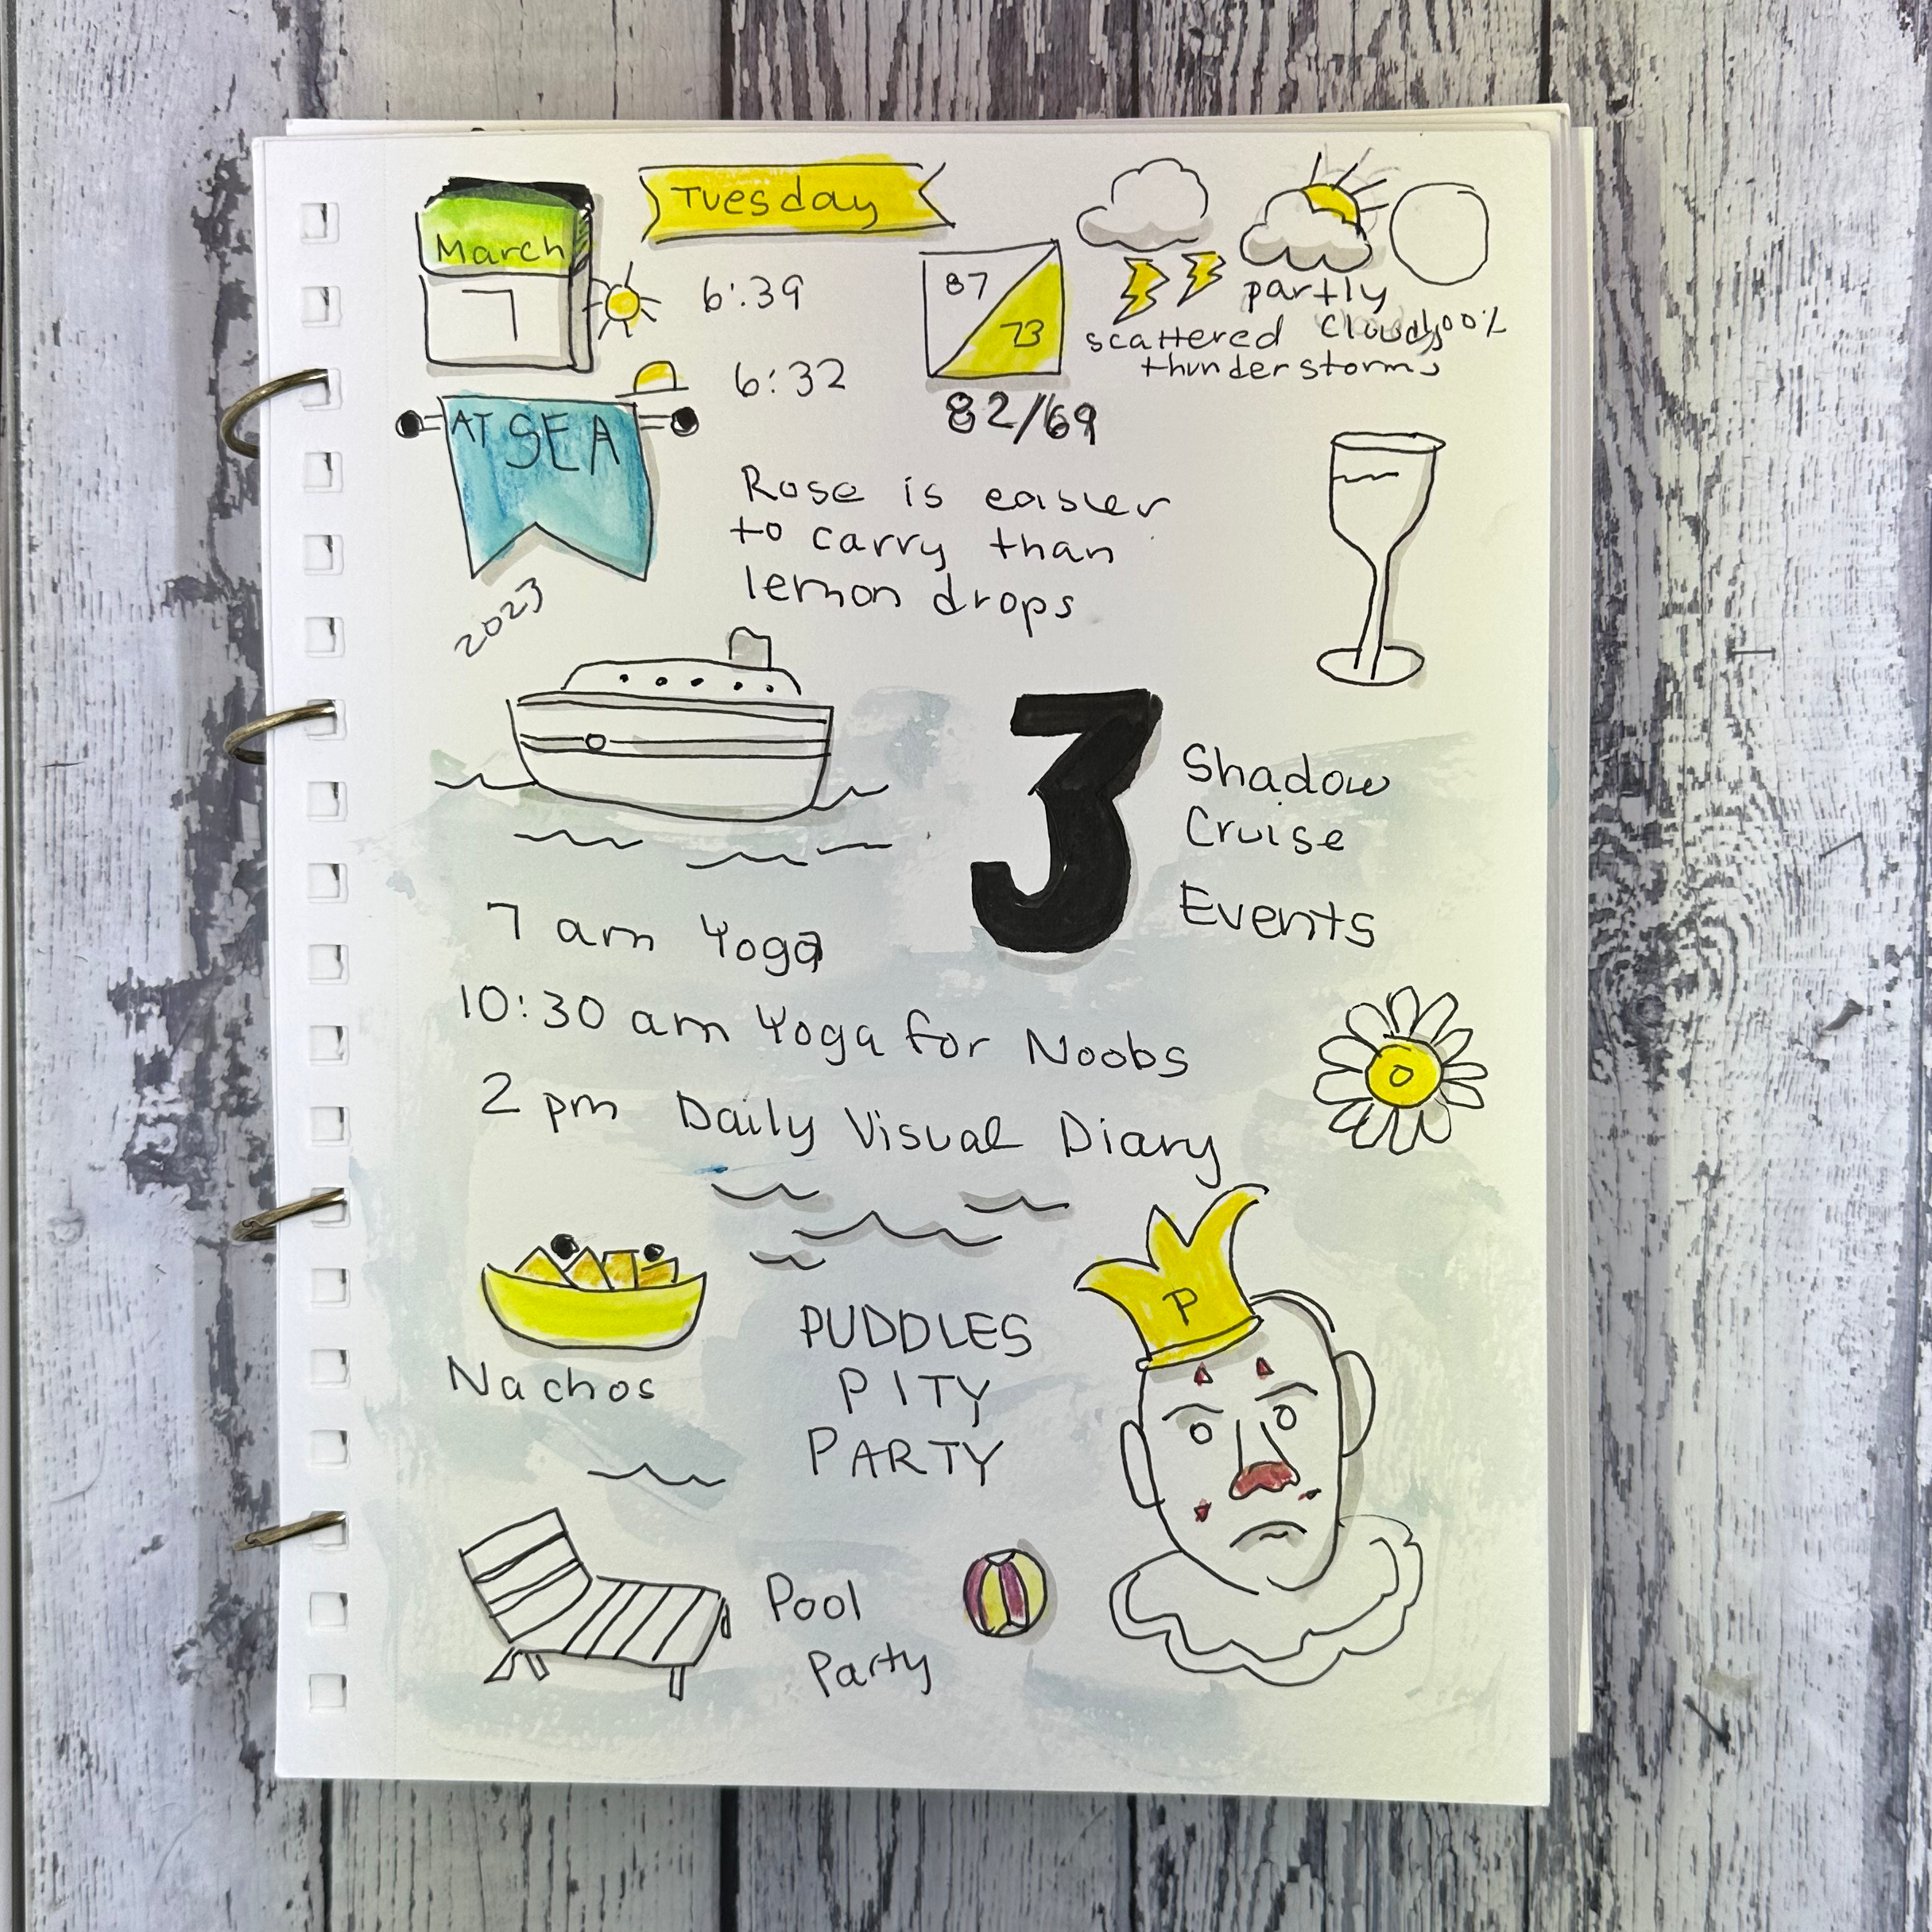 March
7
Tuesday
6:39
6:32
87
73
82/69
scattered
thunderstorms
partly
cloudy
100%
AT SEA
2023
Rose is easier
to carry than
lemon drops
3
Shadow
Cruise
Events
7 am Yoga
10:30 am Yoga for Noobs
2 pm Daily Visual Diary
Nachos
PUDDLES
PITY
PARTY
P
Pool
Party